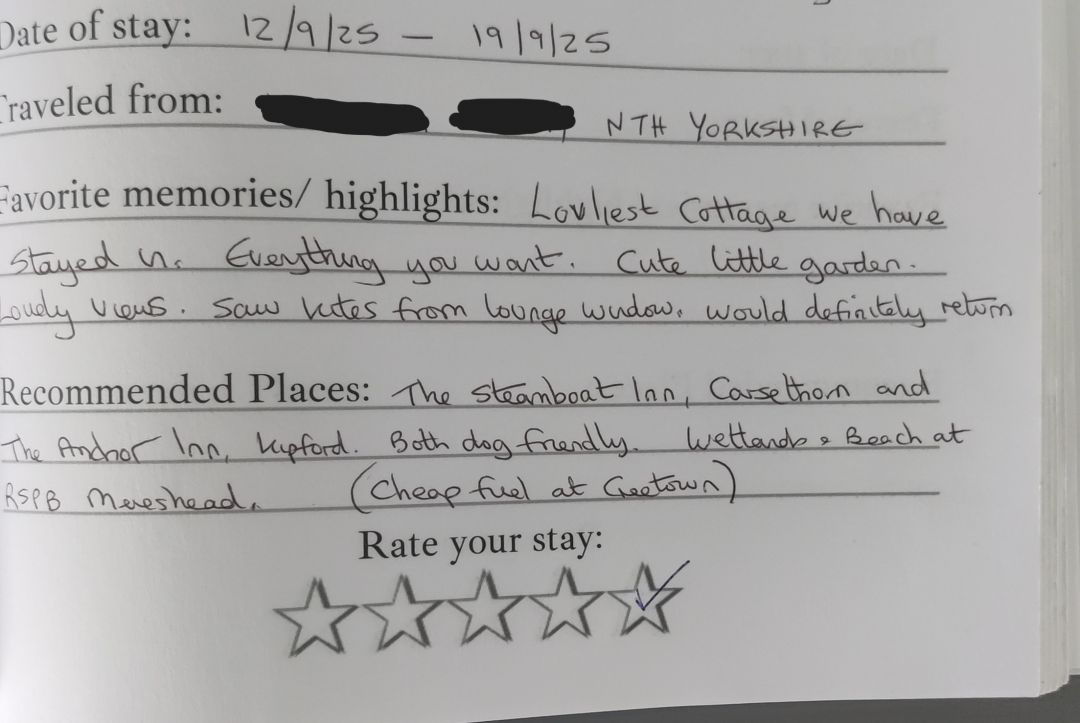 Date of stay: 12/9/25 – 19/9/25
Traveled from: NTH YORKSHIRE
Favorite memories/ highlights: Lovliest Cottage we have
Stayed in. Everything you want. Cute little garden.
Lovely views. Saw kites from lounge window. would definitely return
Recommended Places: The Steamboat Inn, Carsethorn and
The Anchor Inn, Kipford. Both dog friendly. Wetlands & Beach at
RSPB Mereshead. (Cheap fuel at Creetown)
Rate your stay: